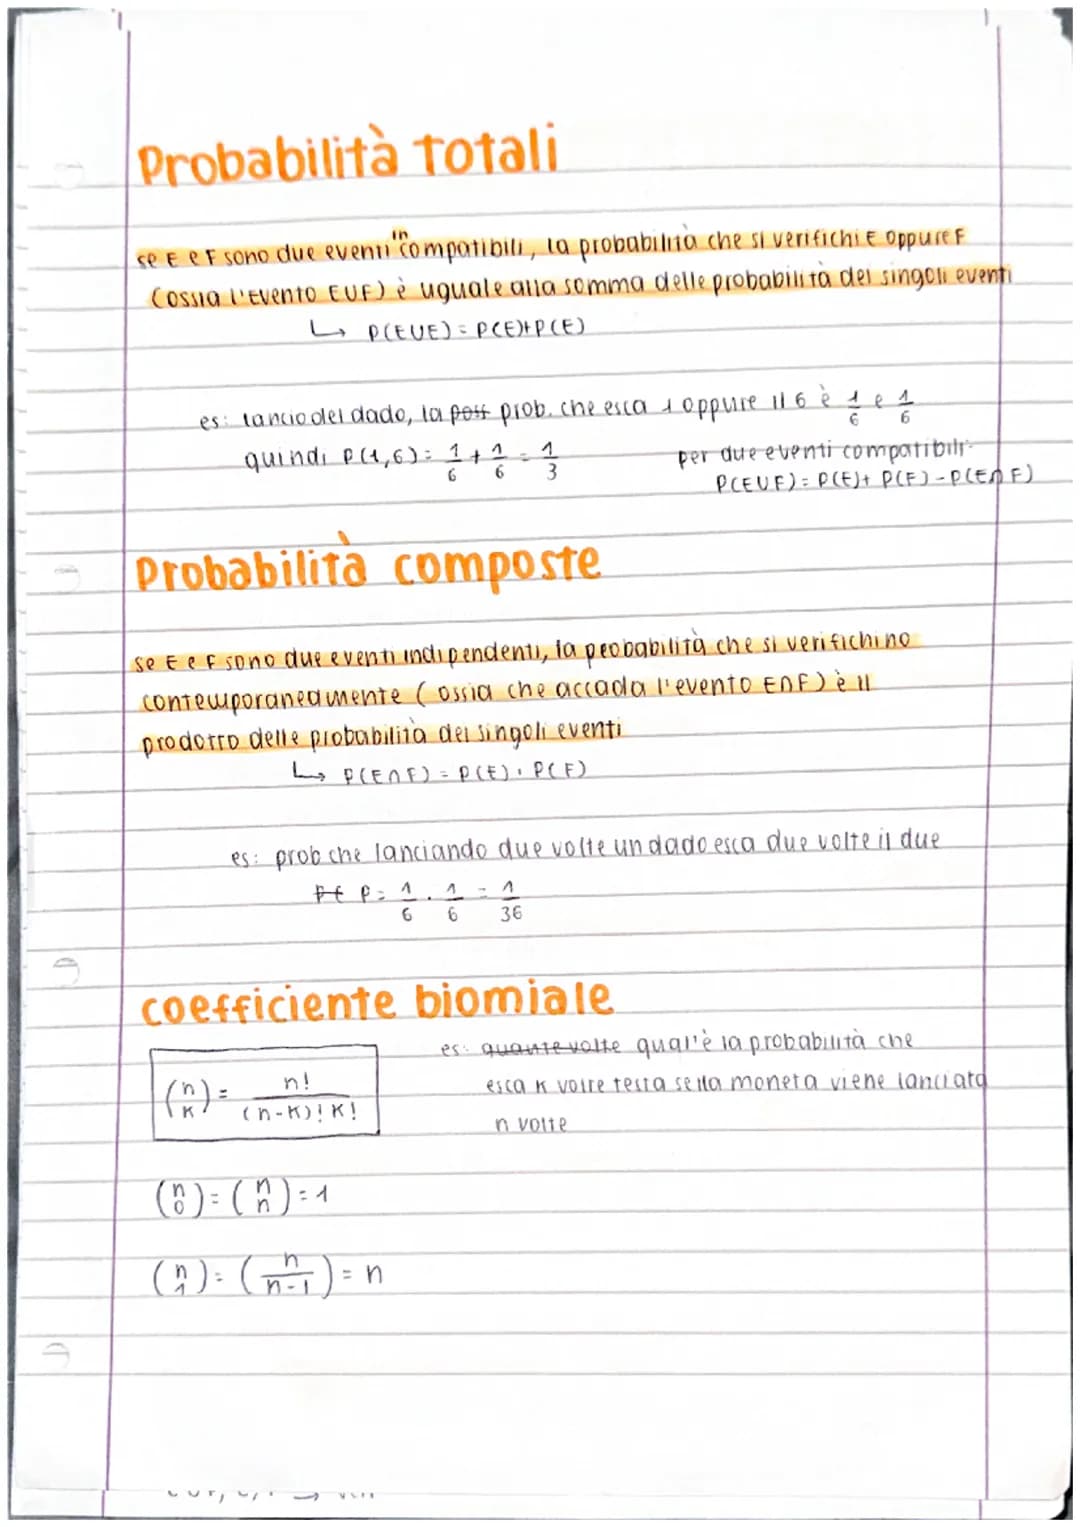 Probabilità totali
se E e F sono due eventi incompatibili, la probabilità che si verifichi E oppure F
(ossia l'Evento EUF) è uguale alla somma delle probabilità dei singoli eventi
↳ P(EUE) = P(E)+P(E)
es: lancio del dado, la poss prob. che esca 1 oppure il 6 è 1/6 e 1/6
quindi P(1,6) = 1/6 + 1/6 = 1/3
per due eventi compatibili:
P(EUF) = P(E)+ P(F) - P(E∩F)
Probabilità composte
se E e F sono due eventi indipendenti, la peobabilità che si verifichino
contemporaneamente ( ossia che accada l'evento E∩F) è il
prodotto delle probabilità dei singoli eventi
↳ P(E∩F) = P(E) · P(F)
es: prob che lanciando due volte un dado esca due volte il due
P = 1/6 · 1/6 = 1/36
coefficiente biomiale
(n K) = n! / (n-K)! K!
es: quante volte qual'è la probabilità che
esca K volte testa se la moneta viene lanciata
n volte
(n 0) = (n n) = 1
(n 1) = (n/n-1) = n